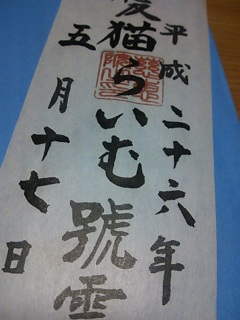 平成二十六年
愛猫らいむ號霊
五月十七日